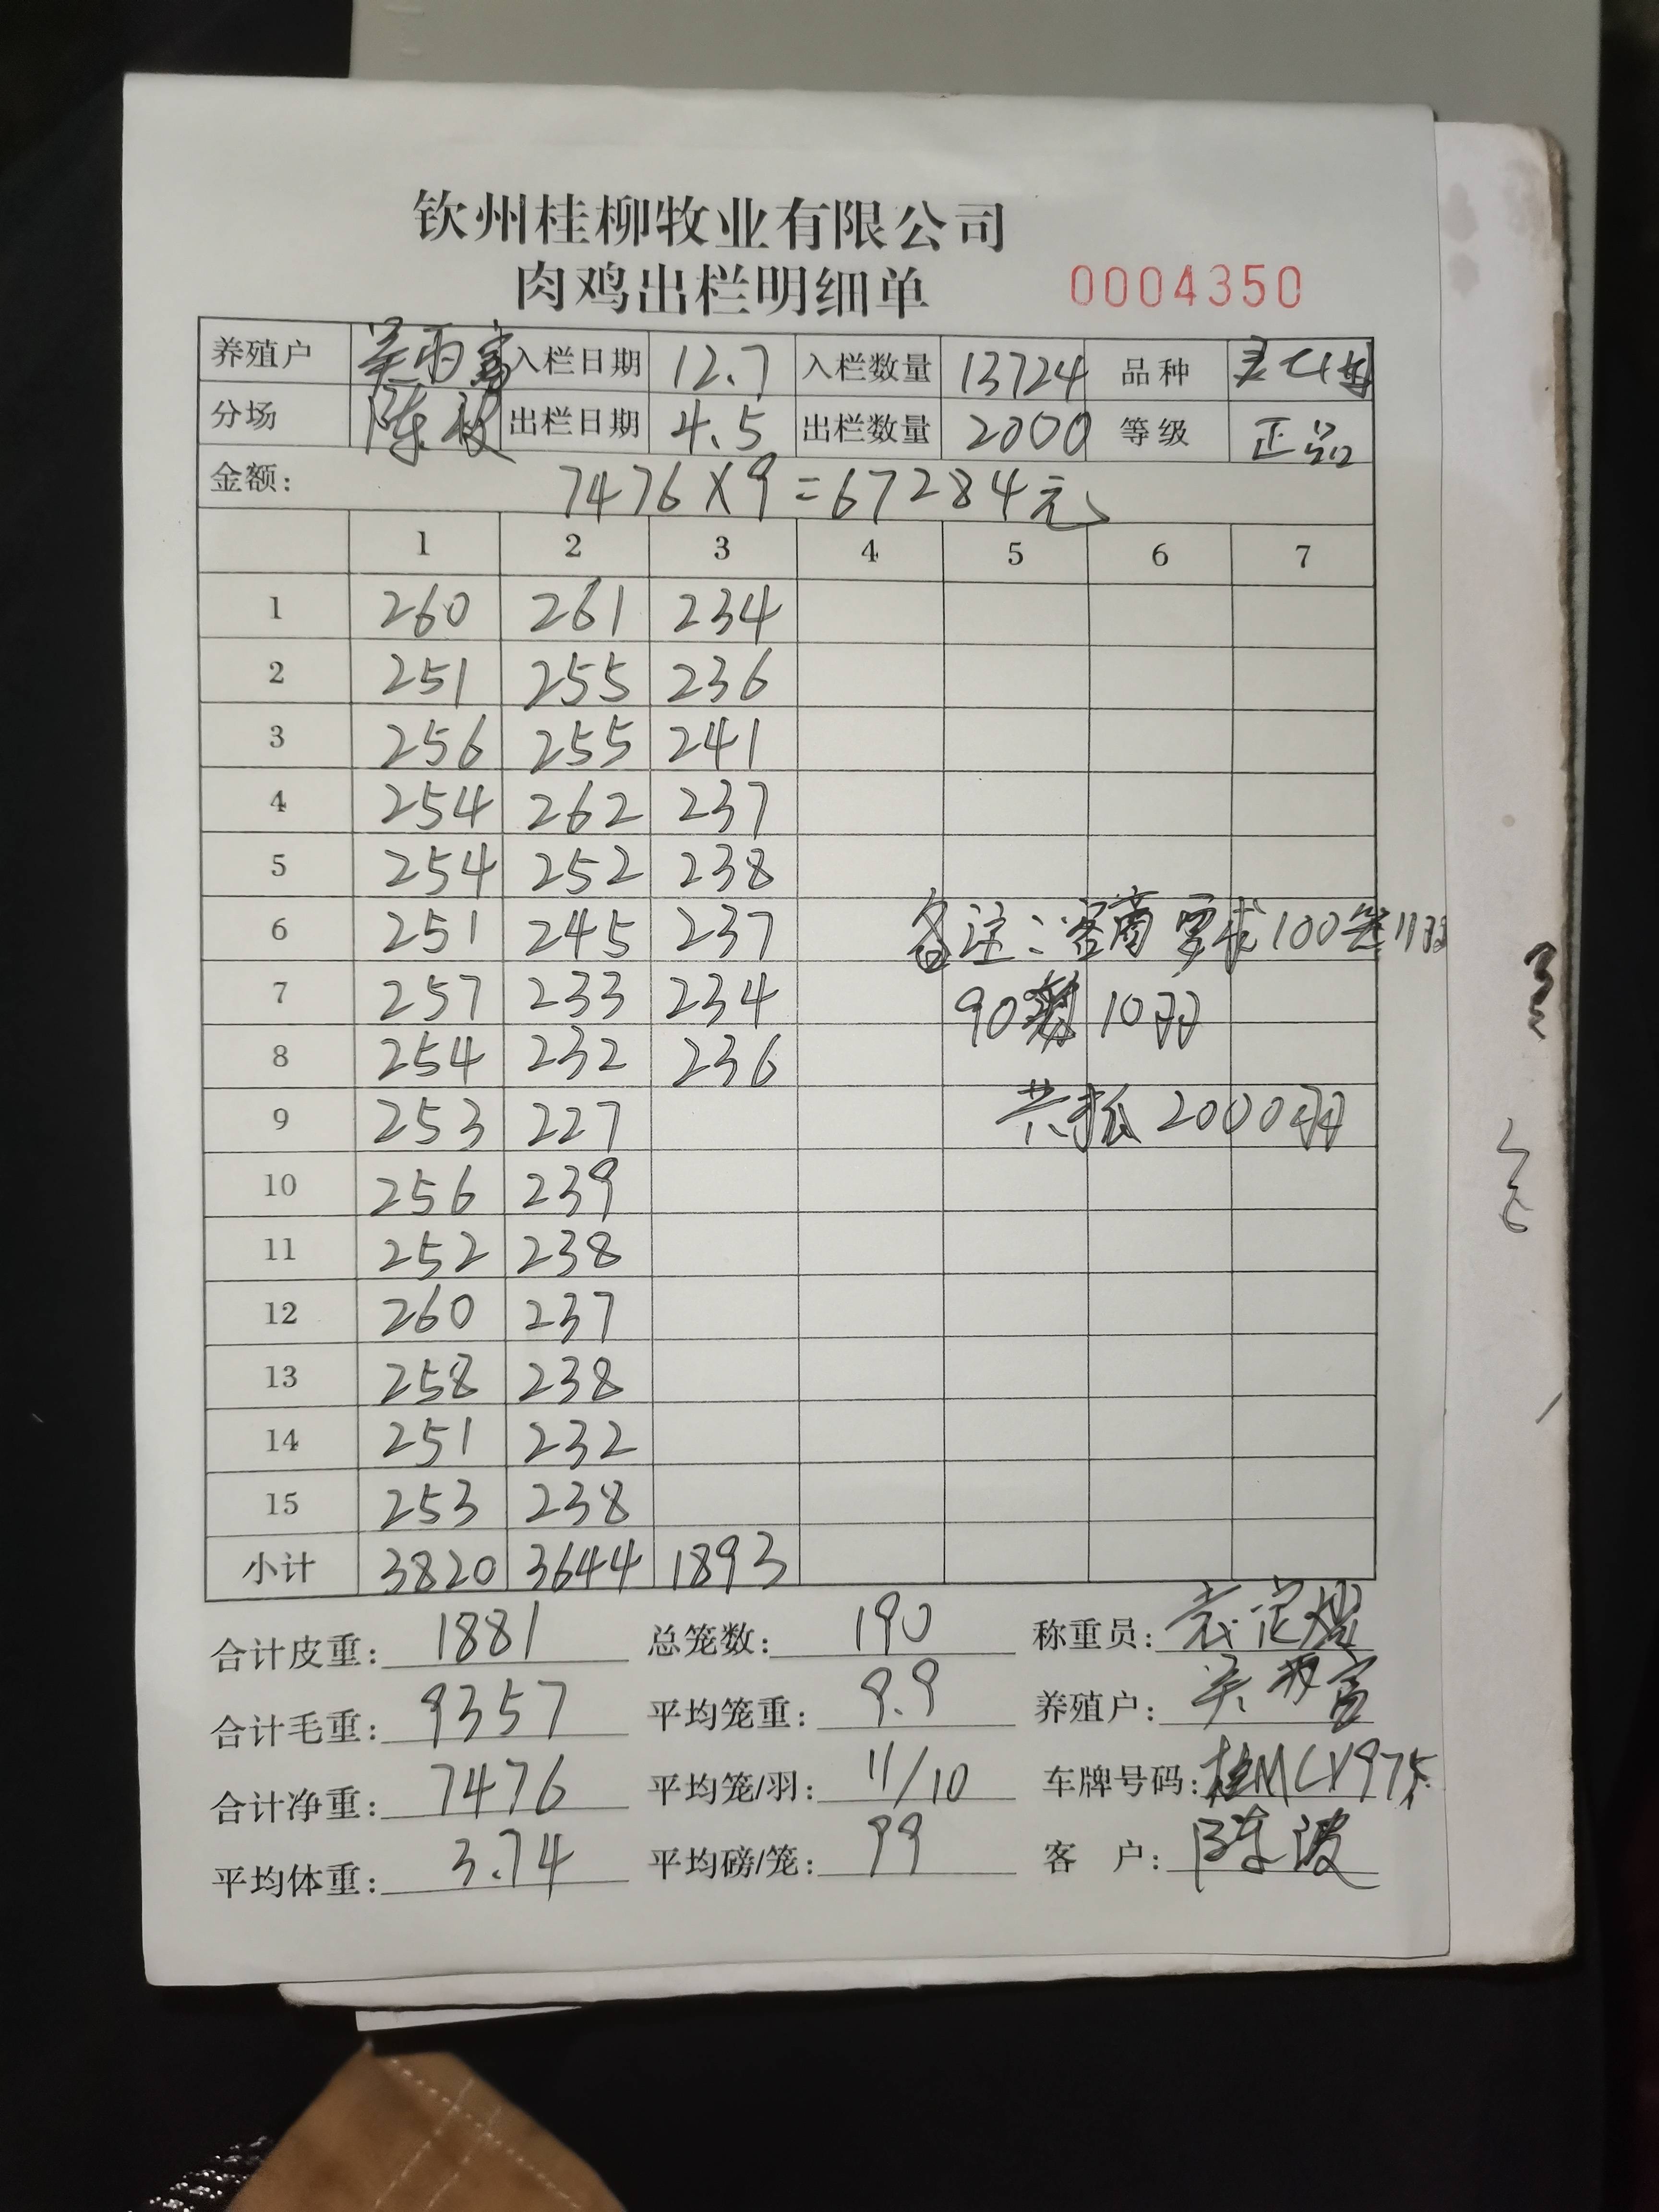 钦州桂柳牧业有限公司
肉鸡出栏明细单 0004350
养殖户 入栏日期 12.7 入栏数量 13724 品种
分场 陈波 出栏日期 4.5 出栏数量 2000 等级 正品
金额: 7476X9=67284元
1 2 3 4 5 6 7
1 260 261 234
2 251 255 236
3 256 255 241
4 254 262 237
5 254 252 238
6 251 245 237 备注:客商要求100笼11羽
7 257 233 234 90 10羽
8 254 232 236
9 253 227 共抓2000羽
10 256 239
11 252 238
12 260 237
13 258 238
14 251 232
15 253 238
小计 3820 3644 1893
合计皮重: 1881 总笼数: 190 称重员:
合计毛重: 9357 平均笼重: 9.9 养殖户:
合计净重: 7476 平均笼/羽: 11/10 车牌号码:
平均体重: 3.74 平均磅/笼: 99 客 户: 陈波